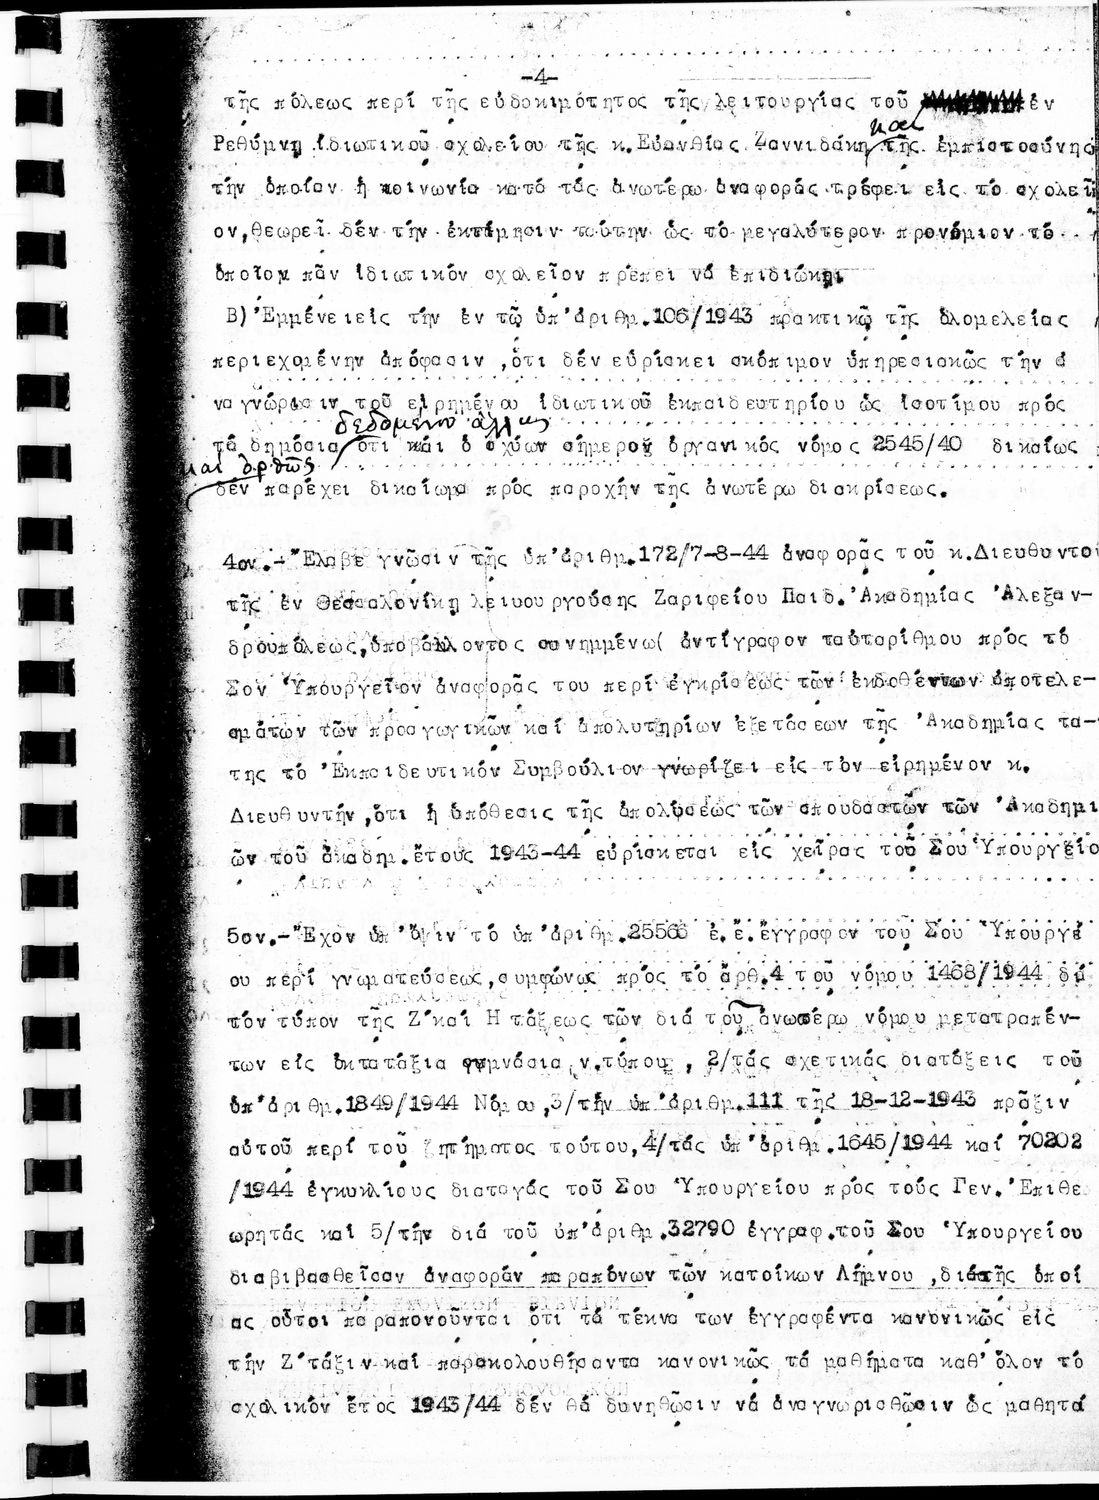 -4-
τῆς πόλεως περί τῆς εὐδοκιμότητος τῆς λειτουργίας τοῦ ἐν
καί
Ρεθύμνῃ ἰδιωτικοῦ σχολείου τῆς κ.Εὐανθίας Ζαννιδάκη τῆς ἐμπιστοσύνης
τήν ὁποίαν ἡ κοινωνία κατά τάς ἀνωτέρω ἀναφοράς τρέφει εἰς τό σχολεῖ
ον,θεωρεῖ δέν τήν ἐκτίμησιν ταύτην ὡς τό μεγαλύτερον προνόμιον τό
ὁποῖον πᾶν ἰδιωτικόν σχολεῖον πρέπει νά ἐπιδιώκῃ
Β)Ἐμμένει εἰς τήν ἐν τῷ ὑπ'ἀριθμ.106/1943 πρακτικῷ τῆς ὁλομελείας
περιεχομένην ἀπόφασιν ,ὅτι δέν εὑρίσκει σκόπιμον ὑπηρεσιακῶς τήν ἀ
ναγνώρισιν τοῦ εἰρημένου ἰδιωτικοῦ ἐκπαιδευτηρίου ὡς ἰσοτίμου πρός
δεδομένου ἄλλως
τά δημόσια ὅτι καί ὁ ἰσχύων σήμερον ὀργανικός νόμος 2545/40 δικαίως
καί ὀρθῶς
δέν παρέχει δικαίωμα πρός παροχήν τῆς ἀνωτέρω διακρίσεως.
4ον.-Ἔλαβε γνῶσιν τῆς ὑπ'ἀριθμ.172/7-8-44 ἀναφορᾶς τοῦ κ.Διευθυντοῦ
τῆς ἐν Θεσσαλονίκῃ λειυουργούσης Ζαριφείου Παιδ.Ἀκαδημίας Ἀλεξαν-
δρουπόλεως,ὑποβάλλοντος συνημμένω( ἀντίγραφον ταὐταρίθμου πρός τό
Σον Ὑπουργεῖον ἀναφορᾶς του περί ἐγκρίσεως τῶν ἐκδοθέντων ἀποτελε-
σμάτων τῶν προαγωγικῶν καί ἀπολυτηρίων ἐξετάσεων τῆς Ἀκαδημίας τα-
της τό Ἐκπαιδευτικόν Συμβούλιον γνωρίζει εἰς τόν εἰρημένον κ.
Διευθυντήν,ὅτι ἡ ὑπόθεσις τῆς ἀπολύσεως τῶν σπουδαστῶν τῶν Ἀκαδημι
ῶν τοῦ ἀκαδημ.ἔτους 1943-44 εὑρίσκεται εἰς χεῖρας τοῦ Σου Ὑπουργείο
5ον.-Ἔχον ὑπ'ὄψιν τό ὑπ'ἀριθμ.25566 ἐ.ἔ.ἔγγραφον τοῦ Σου Ὑπουργεί
ου περί γνωματεύσεως,συμφώνως πρός τό ἄρθ.4 τοῦ νόμου 1468/1944 διά
τόν τύπον τῆς Ζ'καί Η τάξεως τῶν διά τοῦ ἀνωτέρω νόμου μετατραπέν-
των εἰς ὀκτατάξια γυμνάσια ν.τύπου , 2/τάς σχετικάς διατάξεις τοῦ
ὑπ'ἀριθμ.1849/1944 Νόμου ,3/τήν ὑπ'ἀριθμ.111 τῆς 18-12-1943 πρᾶξιν
αὐτοῦ περί τοῦ ζητήματος τούτου,4/τάς ὑπ'ἀριθμ.1645/1944 καί 70202
/1944 ἐγκυκλίους διαταγάς τοῦ Σου Ὑπουργείου πρός τούς Γεν.Ἐπιθε
ωρητάς καί 5/τήν διά τοῦ ὑπ'ἀριθμ.32790 ἐγγραφ.τοῦ Σου Ὑπουργείου
διαβιβασθεῖσαν ἀναφοράν παραπόνων τῶν κατοίκων Λήμνου ,διά τῆς ὁποί
ας οὗτοι παραπονοῦνται ὅτι τά τέκνα των ἐγγραφέντα κανονικῶς εἰς
τήν Ζ'τάξιν καί παρακολουθήσαντα κανονικῶς τά μαθήματα καθ'ὅλον τό
σχολικόν ἔτος 1943/44 δέν θά δυνηθῶσιν νά ἀναγνωρισθῶσιν ὡς μαθηταί